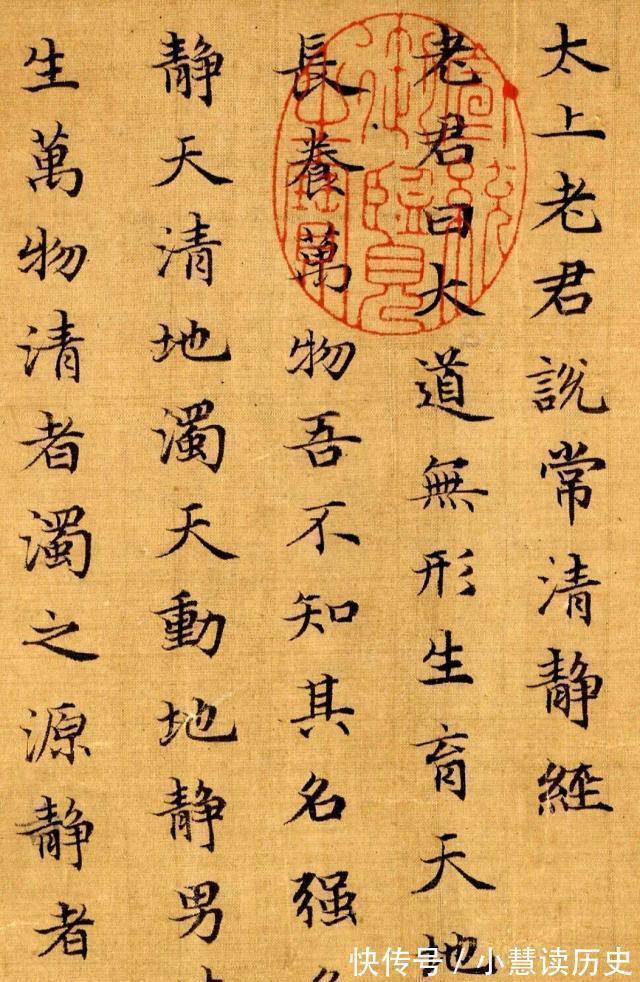 太上老君説常清静經
老君曰大道無形生育天地
長養萬物吾不知其名强
静天清地濁天動地静男
生萬物清者濁之源静者
快传号 / 小慧读历史